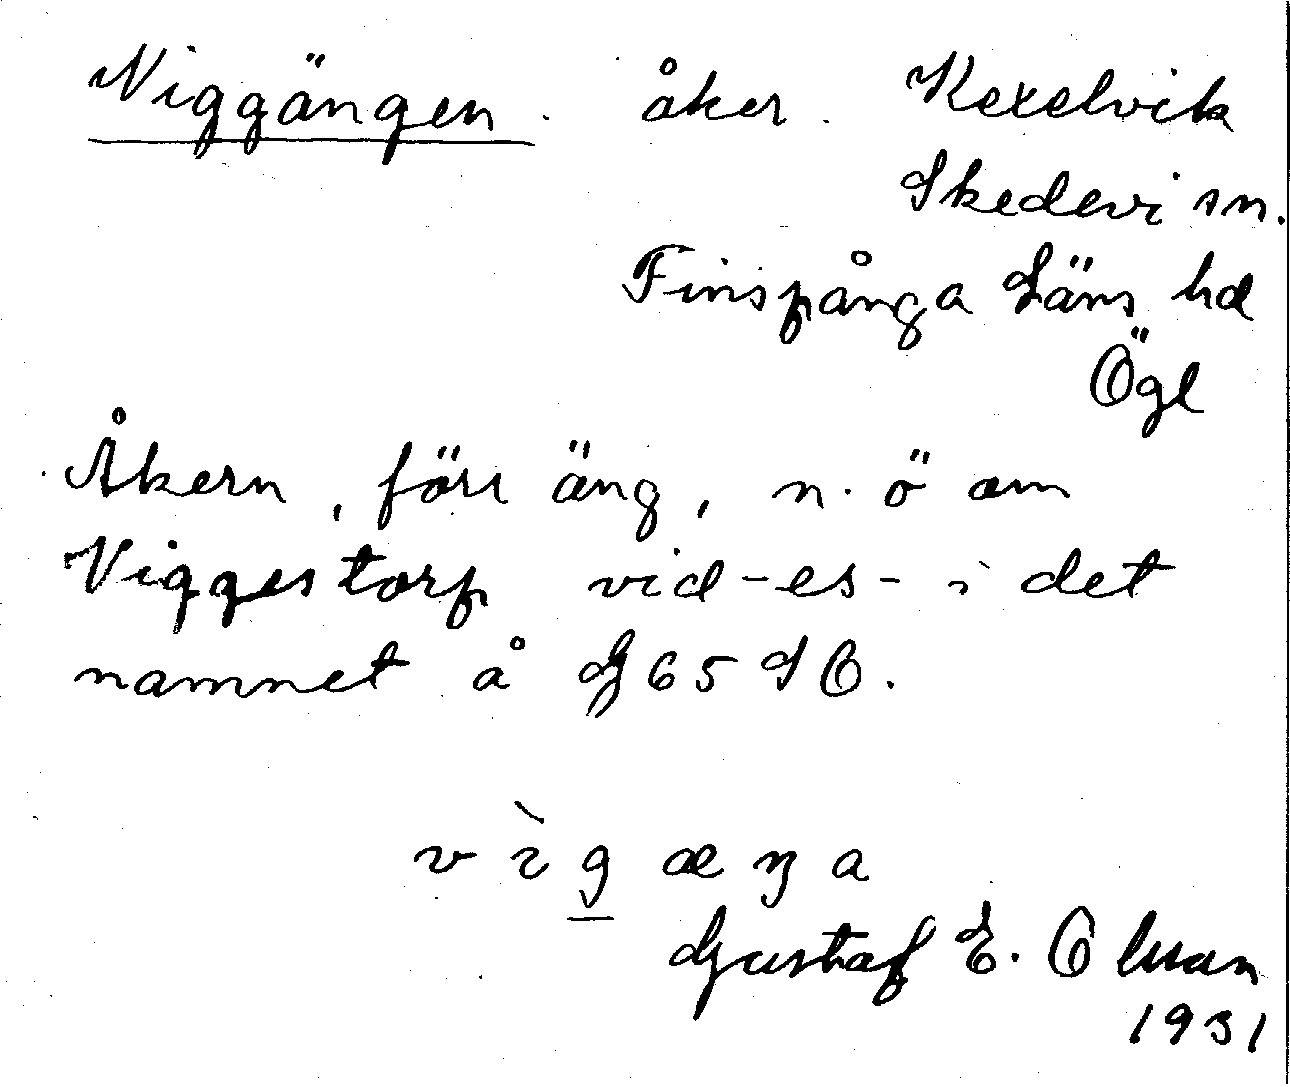 Viggängen. åker. Kexelvik
Skedevi sn.
Finspånga Läns hd
Ögl
Åkern, förr äng, n.ö om
Viggestorp vid -es- i det
namnet å G 65 SO.
vìgæŋa
Gustaf E. Olsson
1931